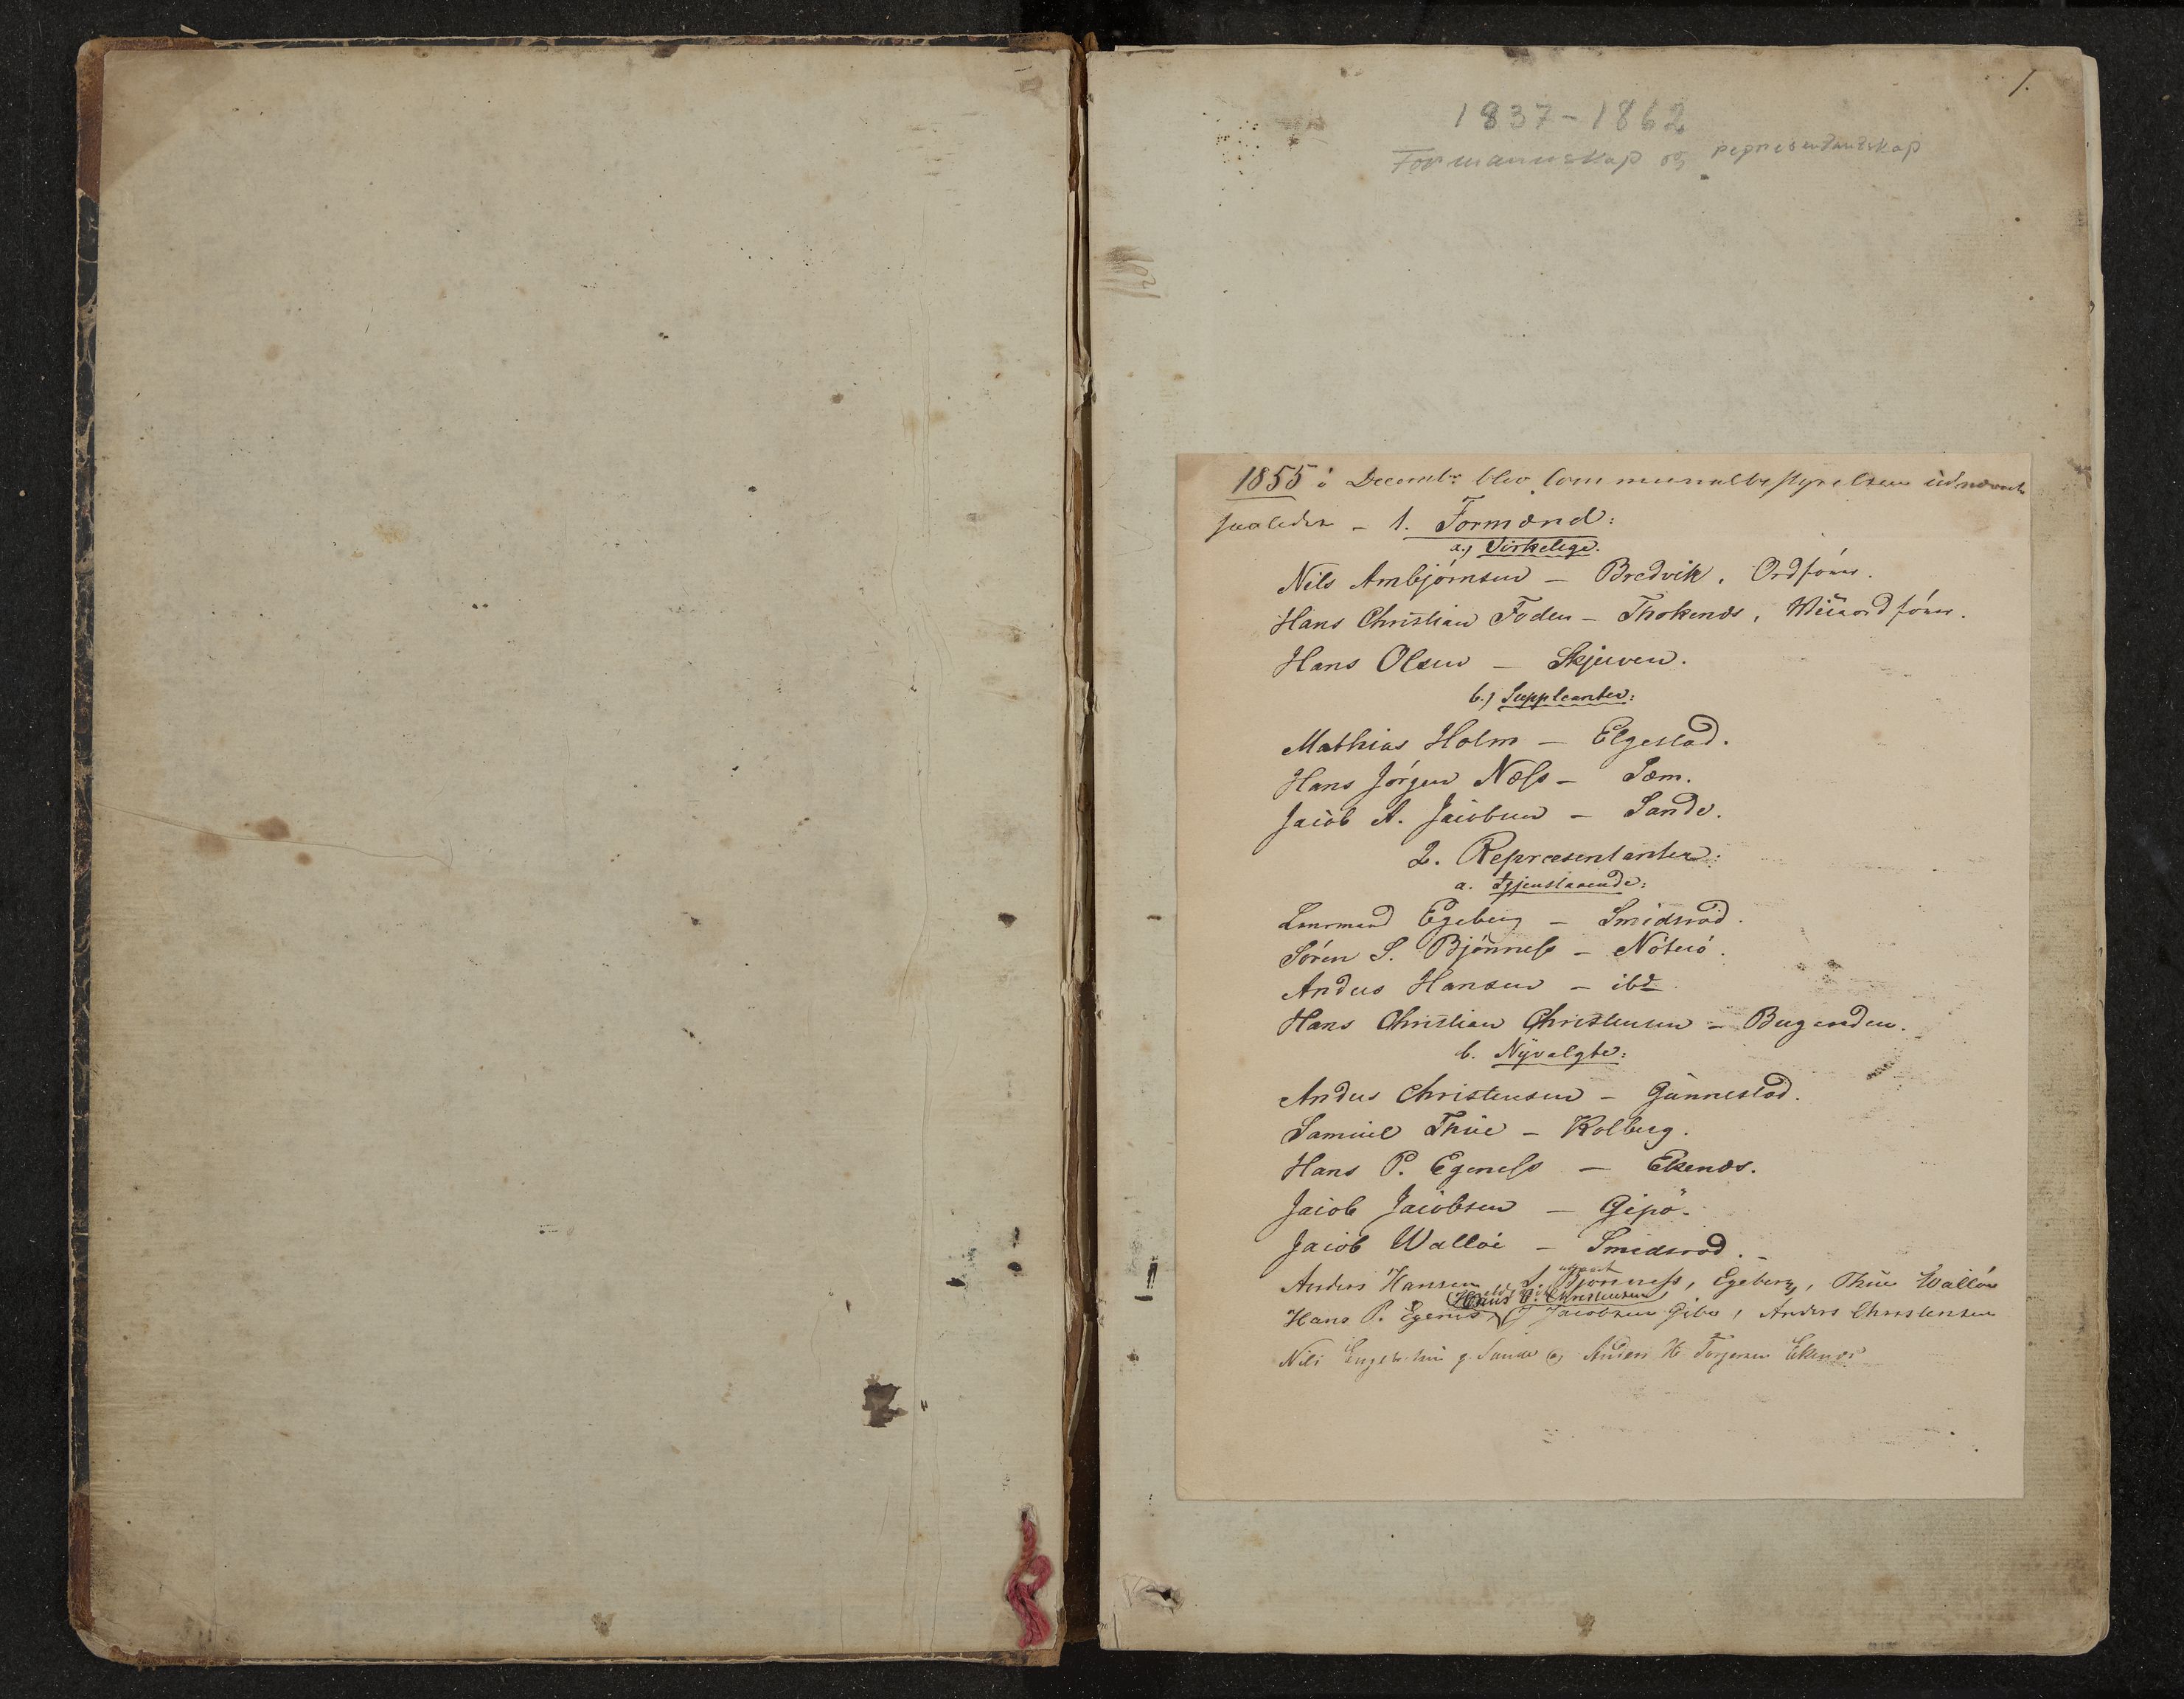 1.
1837-1862
Formannskap og representantskap
1855 i Decembr blev Communalbestyrelsen udnævnt
saaledes - 1. Formænd:
a.) Virkelige.
Nils Ambjørnsen - Bredvik, Ordfører.
Hans Christian Foden - Thokenæs, Viceordfører.
Hans Olsen - Skjerven.
b.) Suppleanter:
Mathias Holm - Elgestad.
Hans Jørgen Næss - Sæm.
Jacob A. Jacobsen - Sande.
2. Repræsentanter:
a. Igjenstaaende:
Lensmand Egeberg - Smidsrød.
Søren S. Bjønness - Nøterø.
Anders Hansen - ibd
Hans Christian Christensen - Bugaarden.
b. Nyvalgte:
Anders Christensen - Gunnestad.
Samuel Thue - Kolberg.
Hans P. Egeness - Ekenæs.
Jacob Jacobsen - Gipø.
Jacob Walløe - Smidsrød.
Anders Hansen S. Bjønness, Egeberg, Thue Walløe
Hans C. Christensen
Hans P. Egenes, J Jacobsen Gibø, Anders Christensen
Nils g. Sande og Anders H Torgersen Ekenæs